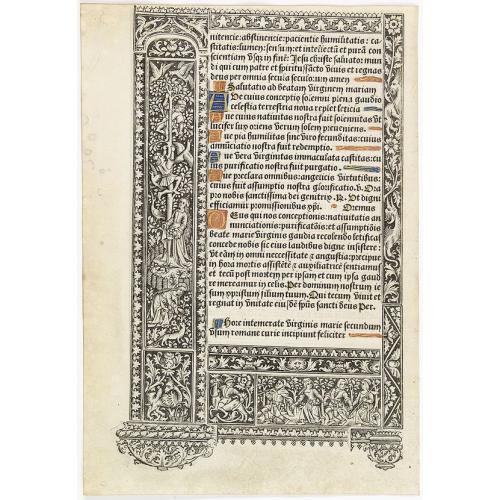 nitencie: abstinencie: pacientie humilitatis: ca-
stitatis: lumen: sensum: et intellectū et purā con
scientiam vsq; in finē: Jesu christe saluator mun
di qui cum patre et spiritusācto viuis et regnas
deus per omnia secula seculorum amen
Salutatio ad beatam virginem mariam
Ve cuius conceptio solenni plena gaudio
celestia terrestria noua replet leticia
Aue cuius natiuitas nostra fuit solennitas vt
lucifer lux oriens verum solem preueniens.
Aue pia humilitas sine viro fecunditas: cuius
annūciatio nostra fuit redemptio.
Aue vera virginitas immaculata castitas: cu
ius purificatio nostra fuit purgatio.
Aue preclara omnibus: angelicis virtutibus:
cuius fuit assumptio nostra glorificatio. v. Ora
pro nobis sanctissima dei genitrix. R. Vt digni
efficiamur promissionibus xp̄i. Oremus
Deus qui nos conceptionis: natiuitatis an
nunciationis: purificatōis: et assumptiōis
beate marie virginis gaudia recolendo letifica[s]
concede nobis sic eius laudibus digne insistere:
vt eām in omni necessitate z angustia: precipue
in hora mortis assistētē z auxiliatricē sentiamus
et tecū post mortem per ipsam et cum ipsa gaude
re mereamur in celis. Per dominum nostrum ie
sum xpristum filium tuum. Qui tecum viuit et
regnat in vnitate eiusdē sp̄us sancti deus Per.
Hore intemerate virginis marie secundum
vsum romane curie incipiunt feliciter